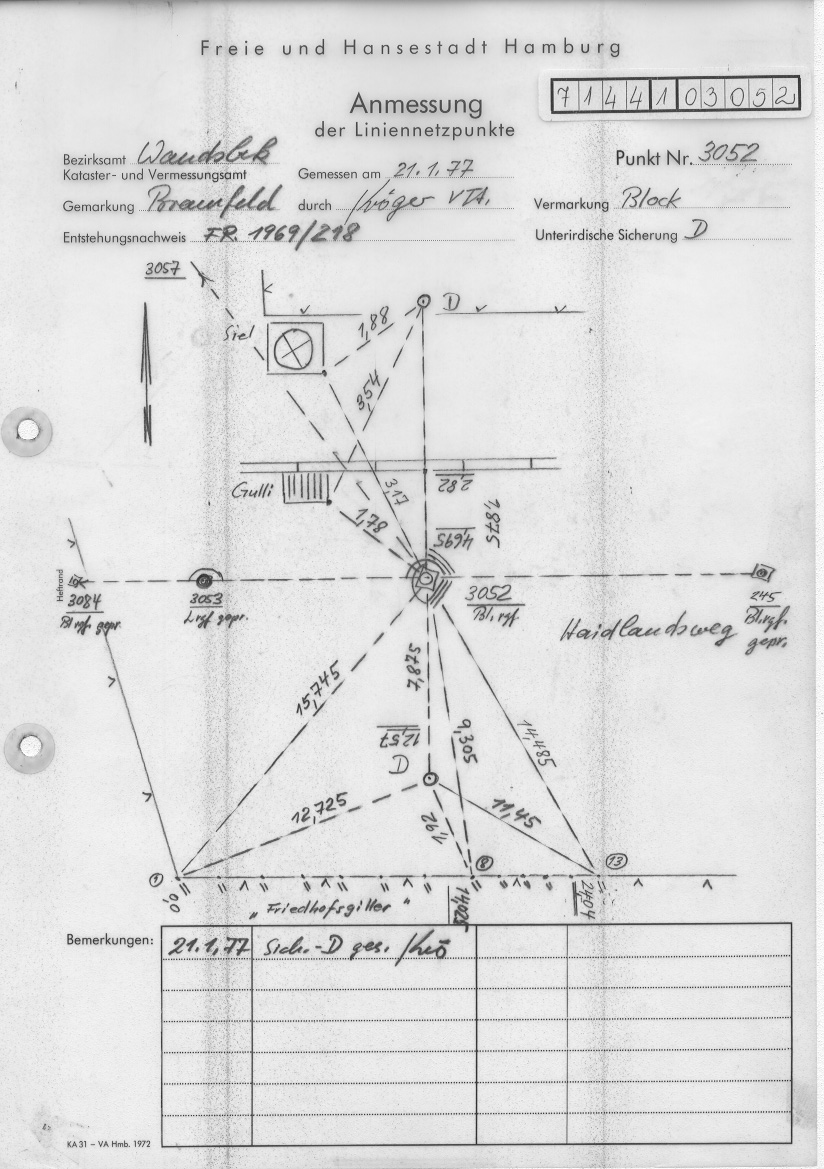 Freie und Hansestadt Hamburg
7144103052
Anmessung
der Liniennetzpunkte
Bezirksamt Wandsbek
Kataster- und Vermessungsamt
Gemessen am 21.1.77
Punkt Nr. 3052
Gemarkung Bramfeld
durch Kröger VTA.
Vermarkung Block
Entstehungsnachweis FR. 1969/218
Unterirdische Sicherung D
3057
D
Siel
1,88
3,54
Gulli
3,17
2,82
1,78
4,695
1,875
Heftrand
3084
Bl.rgf. gepr.
3053
L.rgf. gepr.
3052
Bl.rgf.
245
Bl.rgf.
gepr.
Haidlandsweg
15,745
7,875
14,485
9,305
12,57
D
12,725
11,45
1,92
1
8
13
0,0
"Friedhofsgitter"
14,025
24,04
Bemerkungen:
21.1.77 Sich.-D ges. Krö
KA 31 – VA Hmb. 1972